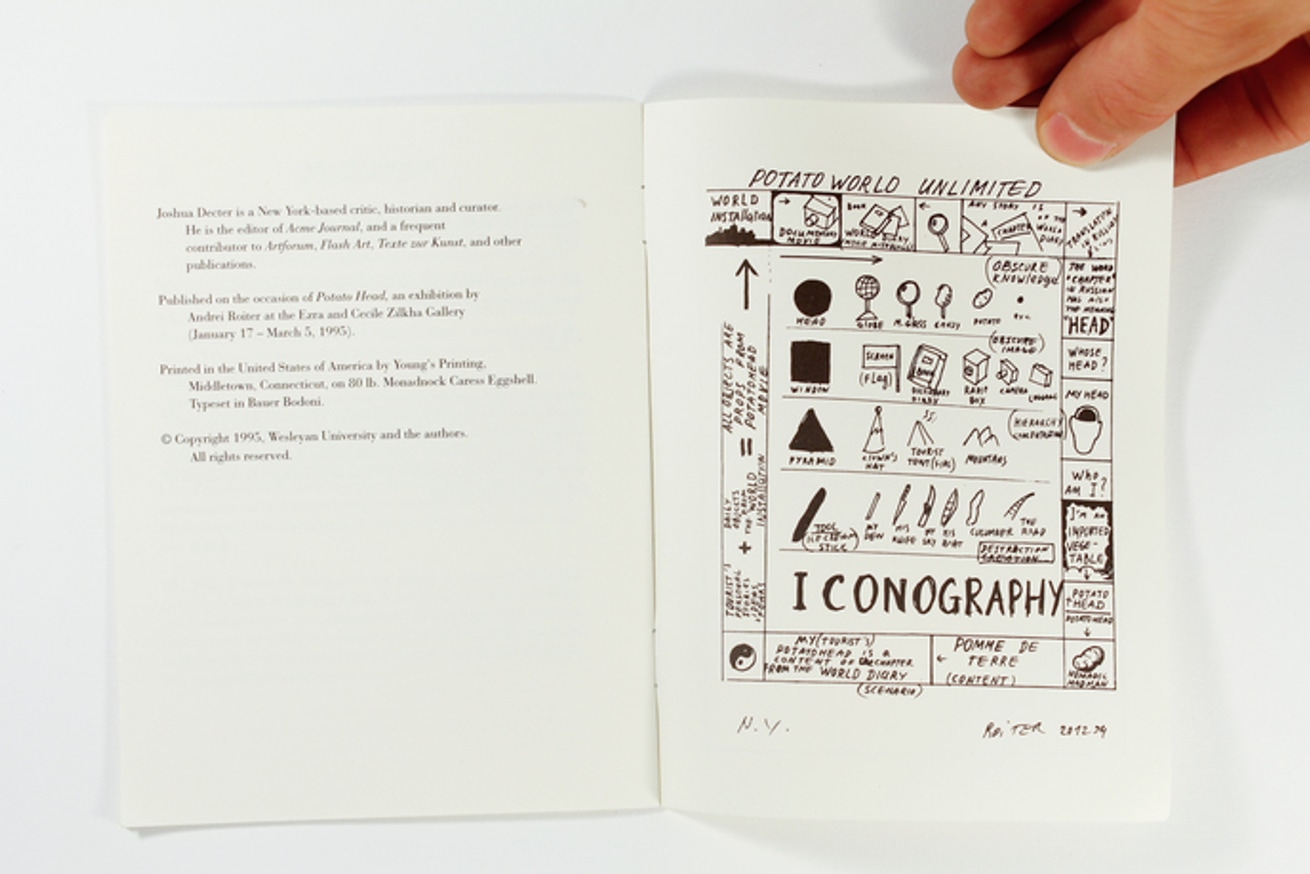 Joshua Decter is a New York-based critic, historian and curator.
He is the editor of Acme Journal, and a frequent
contributor to Artforum, Flash Art, Texte zur Kunst, and other
publications.
Published on the occasion of Potato Head, an exhibition by
Andrei Roiter at the Ezra and Cecile Zilkha Gallery
(January 17 – March 5, 1995).
Printed in the United States of America by Young's Printing,
Middletown, Connecticut, on 80 lb. Monadnock Caress Eggshell.
Typeset in Bauer Bodoni.
© Copyright 1995, Wesleyan University and the authors.
All rights reserved.
POTATO WORLD UNLIMITED
WORLD
INSTALLATION
DOCUMENTARY
MOVIE
BOOK
WORLD DIARY
ANY STORY IS
A CHAPTER
OF THE
WORLD
DIARY
TRANSLATION
IN RUSSIAN
OBSCURE
KNOWLEDGE
HEAD
GLOBE
M.GLASS
CANDY
POTATO
THE WORD
"CHAPTER"
IN RUSSIAN
HAS ALSO
THE MEANING
"HEAD"
(OBSCURE
IMAGE)
WINDOW
SCREEN
(FLAG)
BOOK
DICTIONARY
DIARY
RABIT
BOX
CAMERA
LUGGAGE
WHOSE
HEAD?
MY HEAD
HIERARCHY
PYRAMID
CLOWN'S
HAT
TOURIST
TENT (FIRE)
MOUNTAINS
WHO
AM I?
TOOL
(ICE CREAM)
STICK
MY
HIS
KNIFE
MY
SKY
HIS
BOAT
CUCUMBER
THE
ROAD
DESTRACTION
CREATION
I'M AN
IMPORTED
VEGE-
TABLE
ALL OBJECTS ARE
PROPS FROM
POTATOHEAD
MOVIE
=
DAILY
OBJECTS
FROM
THE WORLD
INSTALLATION
+
TOURIST'S
PERSONAL
STORIES
IDEAS
ICONOGRAPHY
POTATO
HEAD
POTATOHEAD
MY (TOURIST'S)
POTATOHEAD IS A
CONTENT OF THE CHAPTER
FROM THE WORLD DIARY
(SCENARIO)
POMME DE
TERRE
(CONTENT)
NOMADIC
MADMAN
N.Y.
ROiTER